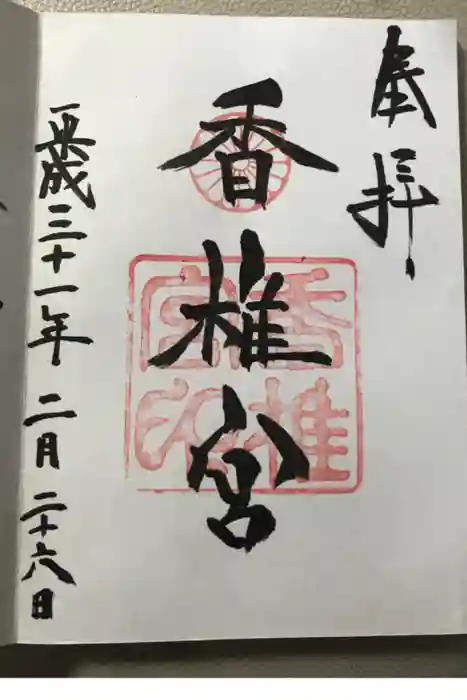 奉拝
香椎宮
香椎宮印
平成三十一年 二月 二十六日